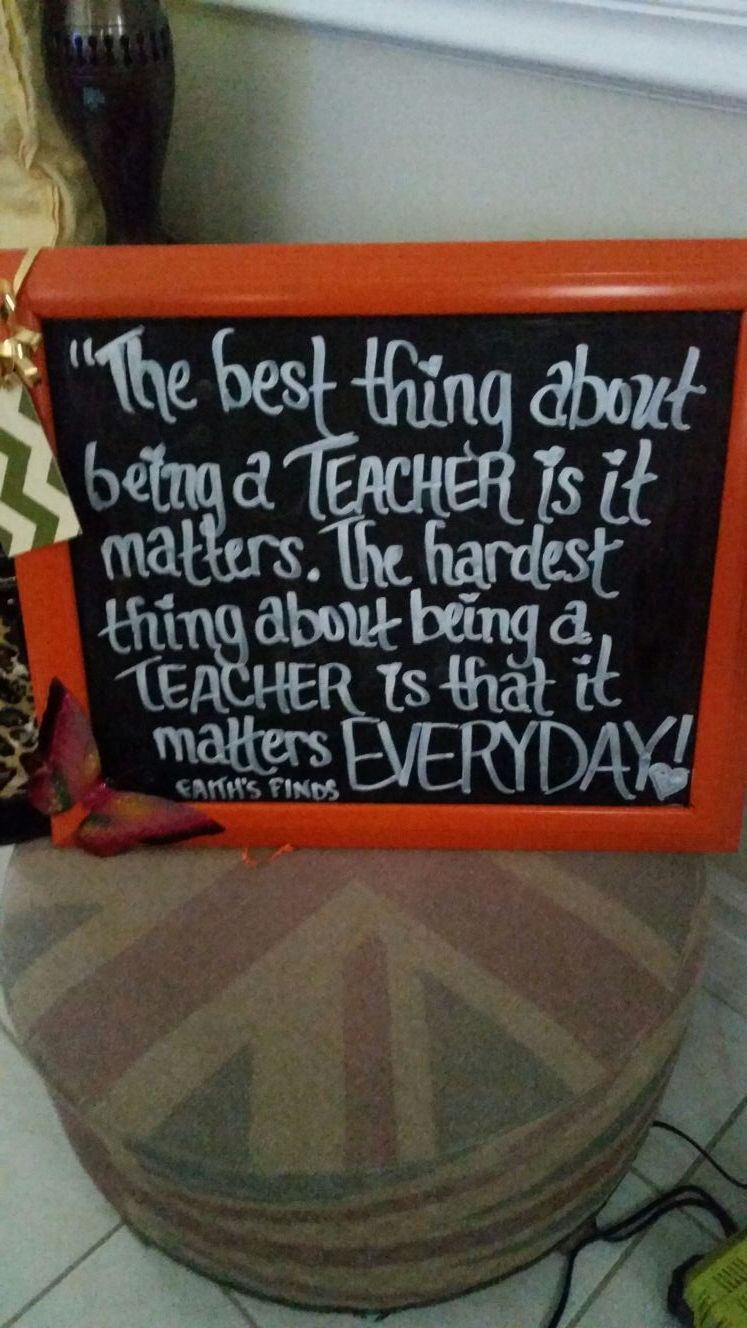 "The best thing about
being a TEACHER is it
matters. The hardest
thing about being a
TEACHER is that it
matters EVERYDAY!
FAITH'S FINDS